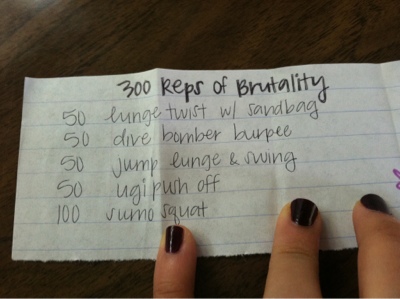 300 Reps of Brutality
50 lunge twist w/ sandbag
50 dive bomber burpee
50 jump lunge & swing
50 ugi push off
100 sumo squat